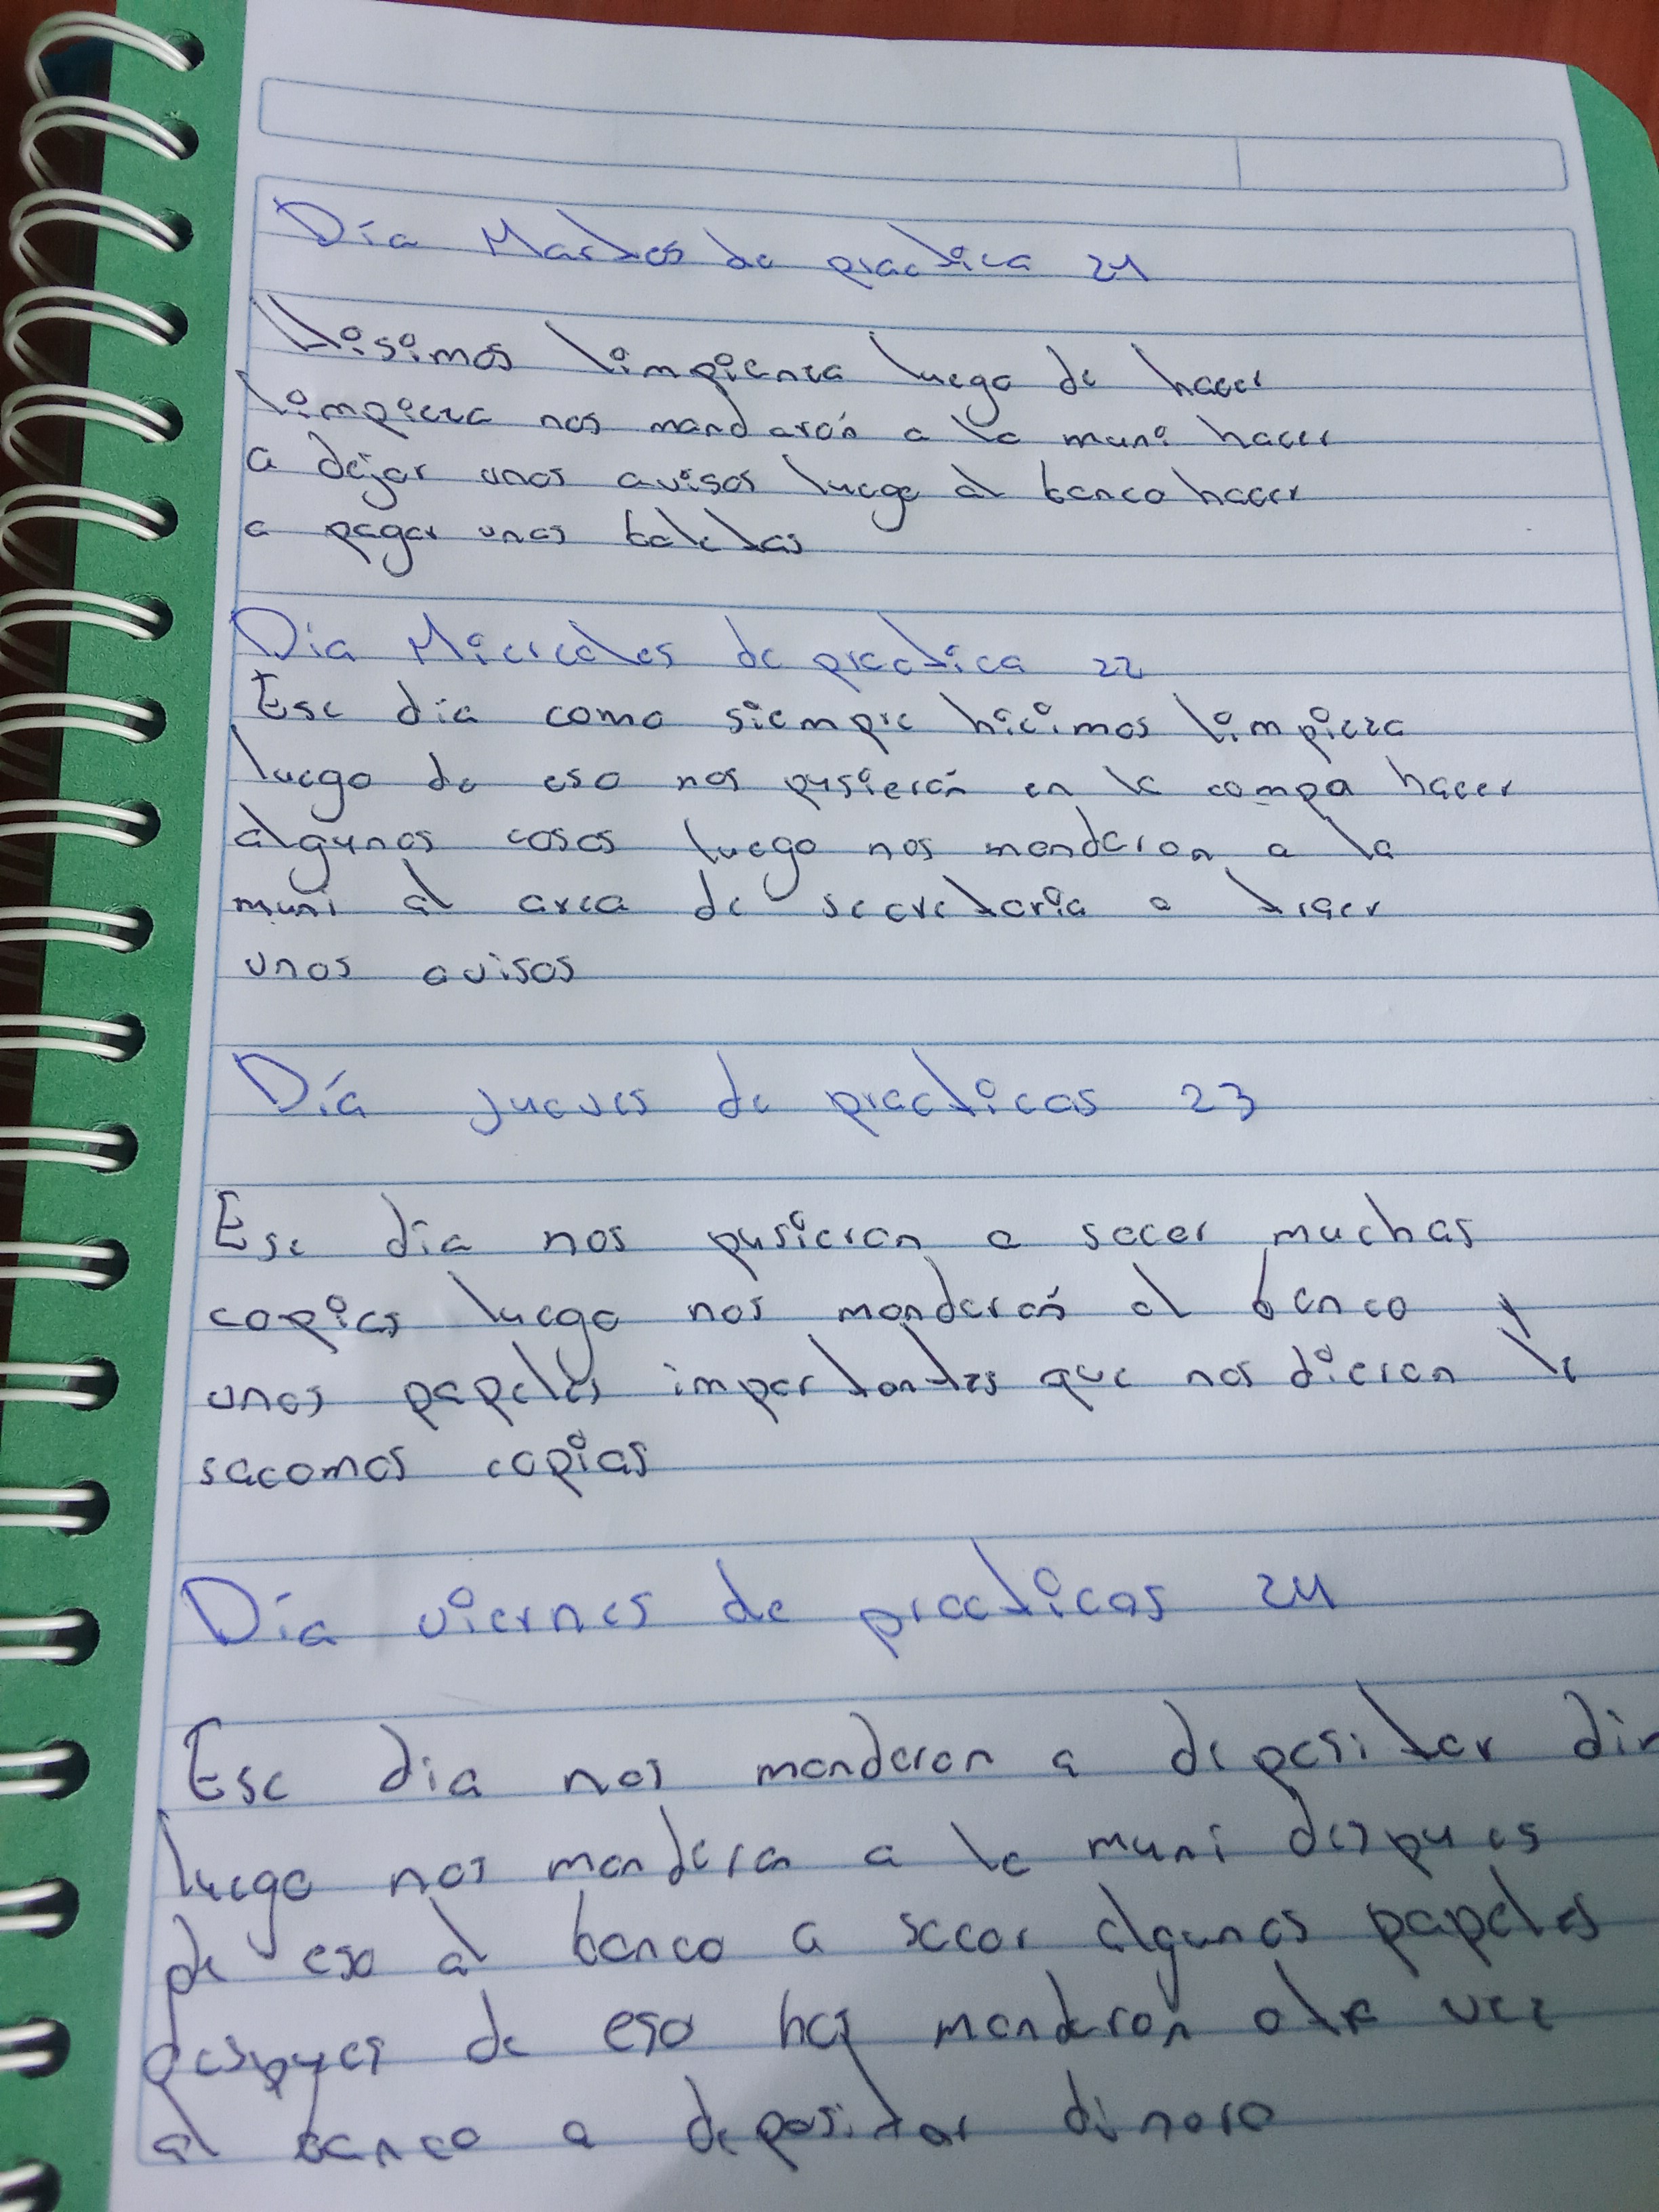 Día Martes de practica 21
Hisimos limpienza luego de hacer
limpieza nos mandarón a la muni hacer
a dejar unos avisos luego al banco hacer
a pagar unas boletas
Dia Miercoles de practica 22
Ese dia como siempre hicimos limpieza
luego de eso nos pusierón en la compa hacer
algunas cosas luego nos mandaron a la
muni al area de secretaria a traer
unos avisos
Día jueves de practicas 23
Ese dia nos pusieron a sacar muchas
copias luego nos mandarón al banco y
unos papeles importantes que nos dieron le
sacamos copias
Día viernes de practicas 24
Ese dia nos mandaron a depositar din
luego nos mandaron a la muni despues
de eso al banco a sacar algunos papeles
despues de eso nos mandarón otra vez
al banco a depositar dinero